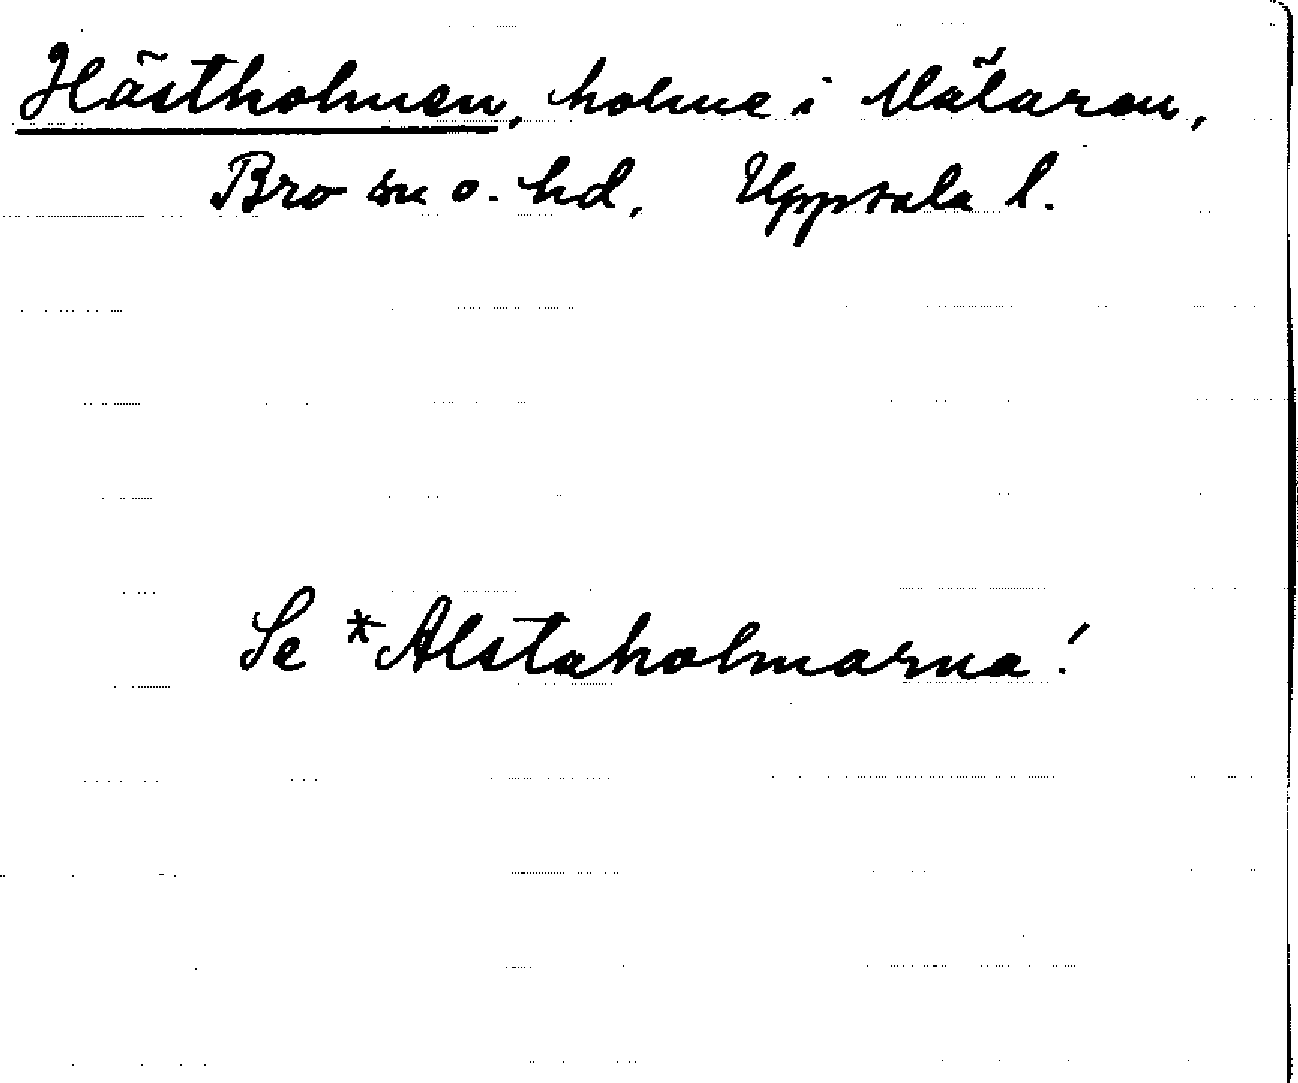 Hästholmen, holme i Mälaren,
Bro sn o. hd, Uppsala l.
Se *Alstaholmarna!